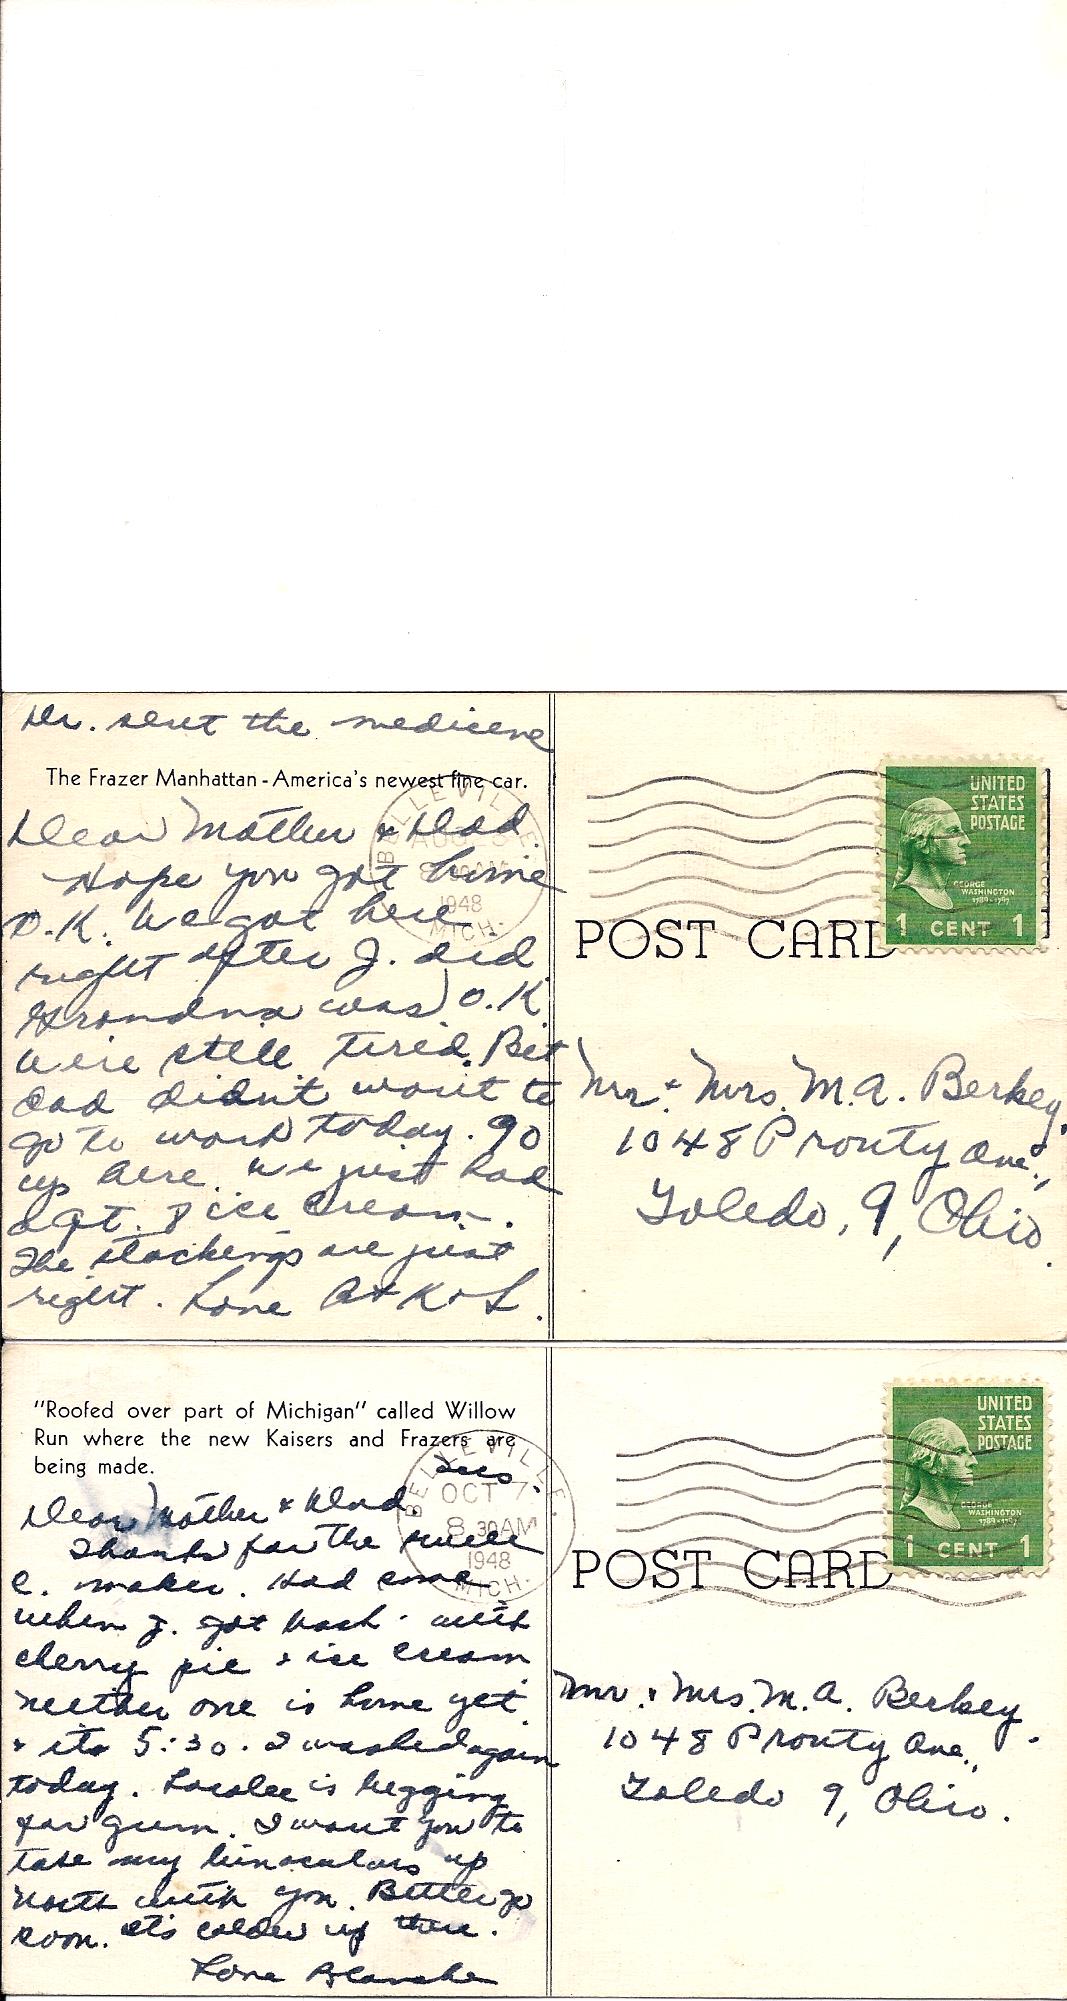 Dr. sent the medicene
The Frazer Manhattan - America's newest fine car.
Dear Mother & Dad.
Hope you got home
O.K. We got here
right after J. did
Grandma was O.K.
We're still tired. Bet
Dad didn't want to
go to work today. 90
up here. We just had
a qt. of ice cream.
The stockings are just
right. Love & K & L.
BELLEVILLE
AUG
1948
MICH.
UNITED
STATES
POSTAGE
GEORGE
WASHINGTON
1789-1797
1 CENT 1
POST CARD
Mr. & Mrs. M.A. Berkey
1048 Prouty Ave.,
Toledo, 9, Ohio.
"Roofed over part of Michigan" called Willow
Run where the new Kaisers and Frazers are
being made.
Tues.
Dear Mother & Dad
Thanks for the
c. maker. Had some
when J. got back with
cherry pie & ice cream
Neither one is home yet
& its 5:30. I washed again
today. Loralee is begging
for gum. I want you to
take my binoculars up
north with you. Better go
soon. It's colder up there.
Love Blanche
BELLEVILLE
OCT 7
8 30 AM
1948
MICH.
UNITED
STATES
POSTAGE
GEORGE
WASHINGTON
1789-1797
1 CENT 1
POST CARD
Mr. & Mrs. M.A. Berkey.
1048 Prouty Ave.,
Toledo 9, Ohio.